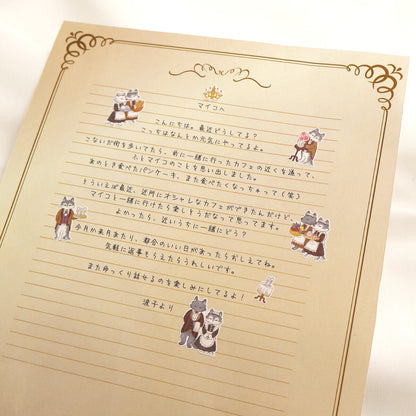 マイコへ
こんにちは。最近どうしてる？
こっちはなんとか元気にやってるよ。
こないだ街を歩いてたら、前に一緒に行ったカフェの近くを通って、
ふとマイコのことを思い出しました。
あのとき食べたパンケーキ、また食べたくなっちゃって（笑）
そういえば最近、近所にオシャレなカフェができたんだけど、
マイコと一緒に行けたら楽しそうだなって思ってます。
よかったら、近いうちに一緒にどう？
今月か来月あたり、都合のいい日があったらおしえてね。
気軽に返事もらえたらうれしいです。
またゆっくり話せるのを楽しみにしてるよ！
波子より